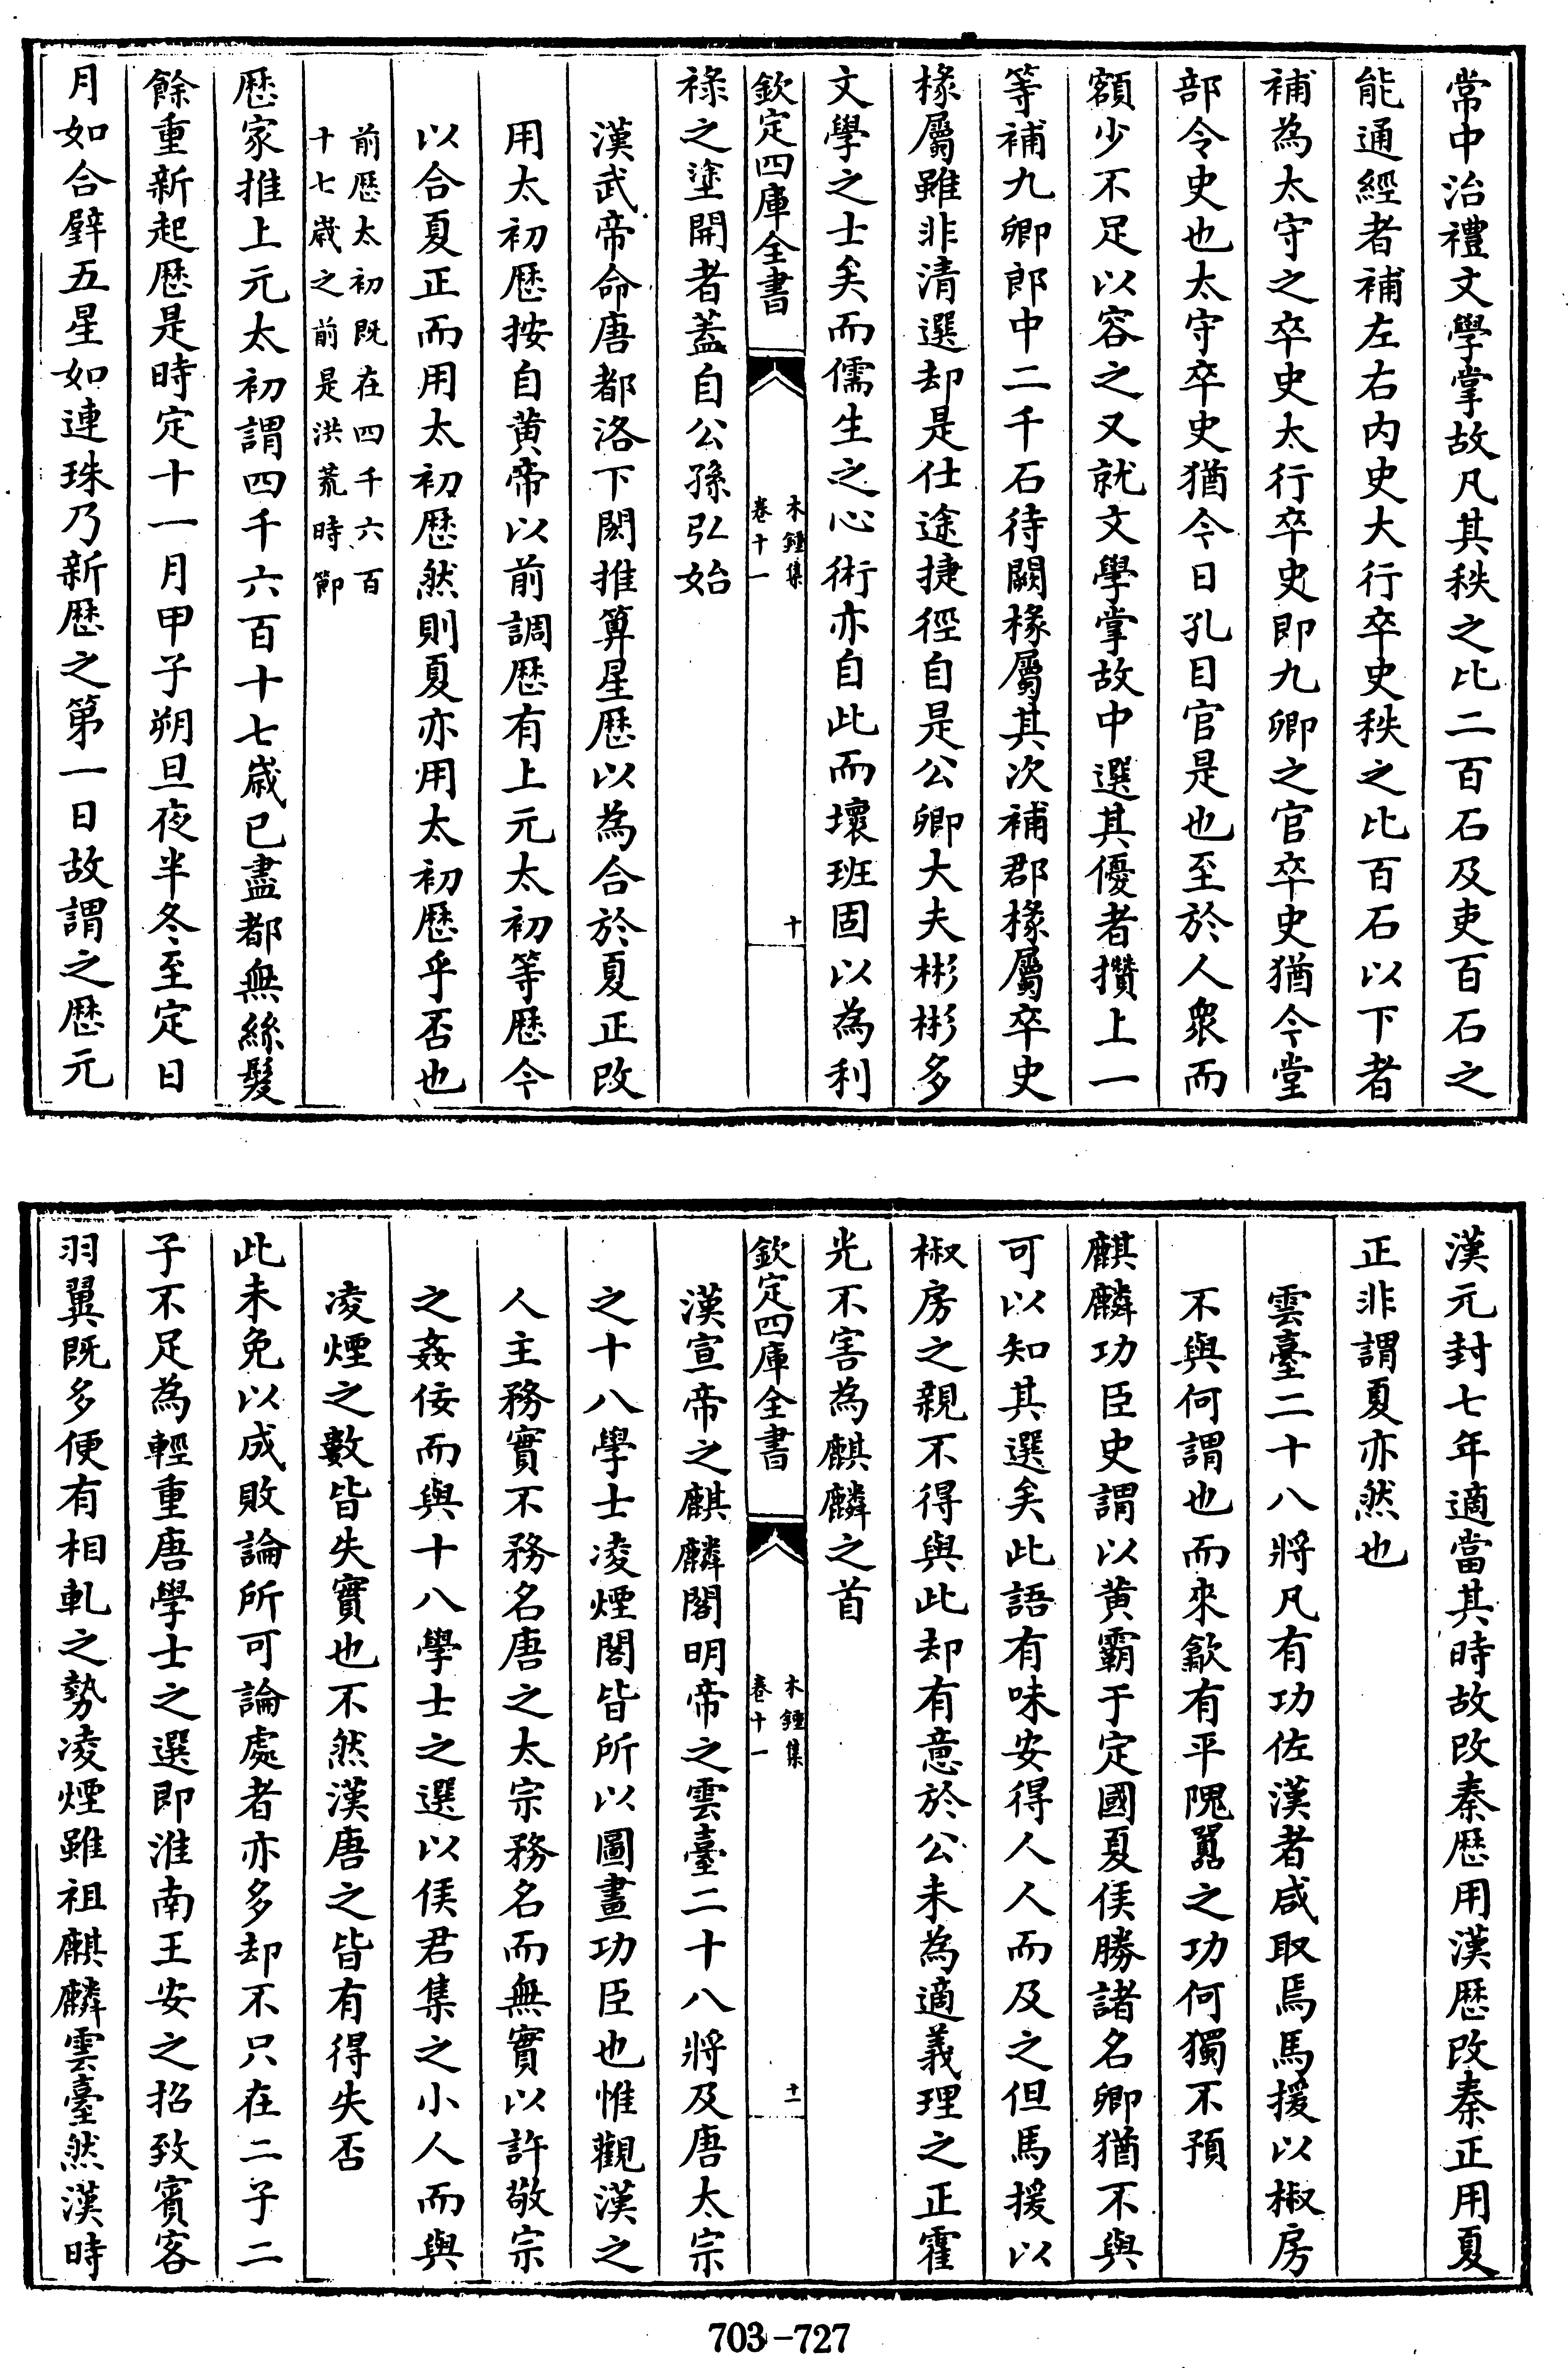 常中治禮文學掌故凡其秩之比二百石及吏百石之
能通經者補左右內史大行卒史秩之比百石以下者
補為太守之卒史太行卒史即九卿之官卒史猶今堂
部令史也太守卒史猶今日孔目官是也至於人衆而
額少不足以容之又就文學掌故中選其優者攢上一
等補九卿郎中二千石待闕椽屬其次補郡椽屬卒史
椽屬雖非清選却是仕途捷徑自是公卿大夫彬彬多
文學之士矣而儒生之心術亦自此而壞班固以為利
欽定四庫全書
木鍾集
卷十一
十
祿之塗開者蓋自公孫弘始
漢武帝命唐都洛下閎推算星厯以為合於夏正改
用太初厯按自黄帝以前調厯有上元太初等厯今
以合夏正而用太初厯然則夏亦用太初厯乎否也
前厯太初既在四千六百
十七歲之前是洪荒時節
厯家推上元太初謂四千六百十七歲已盡都無絲髮
餘重新起厯是時定十一月甲子朔旦夜半冬至定日
月如合璧五星如連珠乃新厯之第一日故謂之厯元
漢元封七年適當其時故改秦厯用漢厯改秦正用夏
正非謂夏亦然也
雲臺二十八將凡有功佐漢者咸取焉馬援以椒房
不與何謂也而來歙有平隗囂之功何獨不預
麒麟功臣史謂以黄霸于定國夏侯勝諸名卿猶不與
可以知其選矣此語有味安得人人而及之但馬援以
椒房之親不得與此却有意於公未為適義理之正霍
光不害為麒麟之首
欽定四庫全書
木鍾集
卷十一
十一
漢宣帝之麒麟閣明帝之雲臺二十八將及唐太宗
之十八學士凌煙閣皆所以圖畫功臣也惟觀漢之
人主務實不務名唐之太宗務名而無實以許敬宗
之姦佞而與十八學士之選以侯君集之小人而與
凌煙之數皆失實也不然漢唐之皆有得失否
此未免以成敗論所可論處者亦多却不只在二子二
子不足為輕重唐學士之選即淮南王安之招致賓客
羽翼既多便有相軋之勢凌煙雖祖麒麟雲臺然漢時
703-727